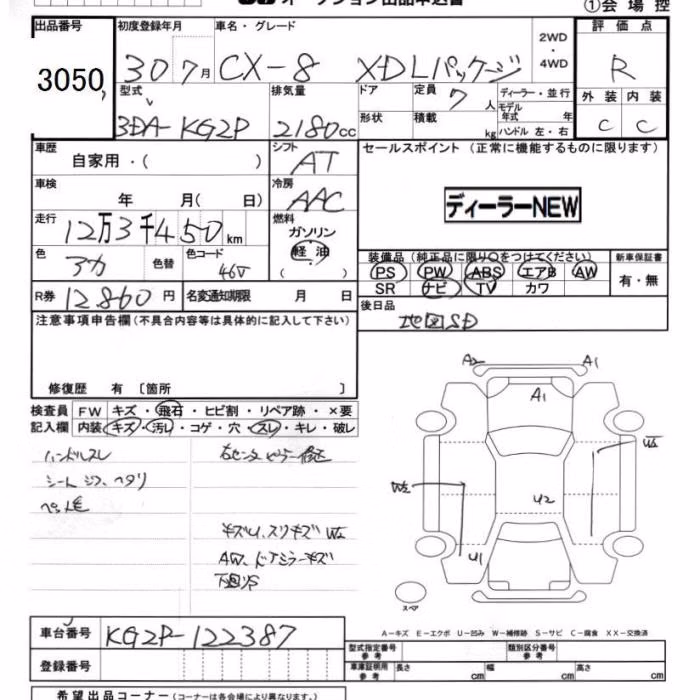 オークション出品申込書 ①会場控
出品番号 初度登録年月 車名・グレード 2WD・4WD 評価点
3050 30 7月 CX-8 XDLパッケージ R
型式 排気量 ドア 定員 7人 ディーラー・並行 外装 内装
3DA-KG2P 2180cc 形状 積載 kg モデル年式 年 ハンドル 左・右 C C
車歴 自家用・( ) シフト AT セールスポイント (正常に機能するものに限ります)
車検 年 月( 日) 冷房 AAC ディーラーNEW
走行 12万3千450km 燃料 ガソリン 軽油 ( )
色 アカ 色替 色コード 46V 装備品 (純正品に限り○をつけてください) 新車保証書
PS PW ABS エアB AW 有・無
SR ナビ TV カワ
R券 12860円 名変通知期限 月 日 後日品 地図SD
注意事項申告欄 (不具合内容等は具体的に記入して下さい)
修復歴 有 〔箇所 〕
検査員 FW キズ・飛石・ヒビ割・リペア跡・×要
記入欄 内装 キズ・汚レ・コゲ・穴・スレ・キレ・破レ
ハンドルスレ
シートシワ、ヘタリ
ペット毛
キズU、スリキズ W2
AW、ドアミラーキズ
下廻りS
A2 A1
A1
W2
W2 U2
U1
スペア
A-キズ E-エクボ U-凹み W-補修跡 S-サビ C-腐食 XX-交換済
車台番号 KG2P-122387
登録番号
型式指定番号 参考 類別区分番号 参考
車庫証明用 参考 長さ cm 幅 cm 高さ cm
希望出品コーナー (コーナーは各会場により異なります。)